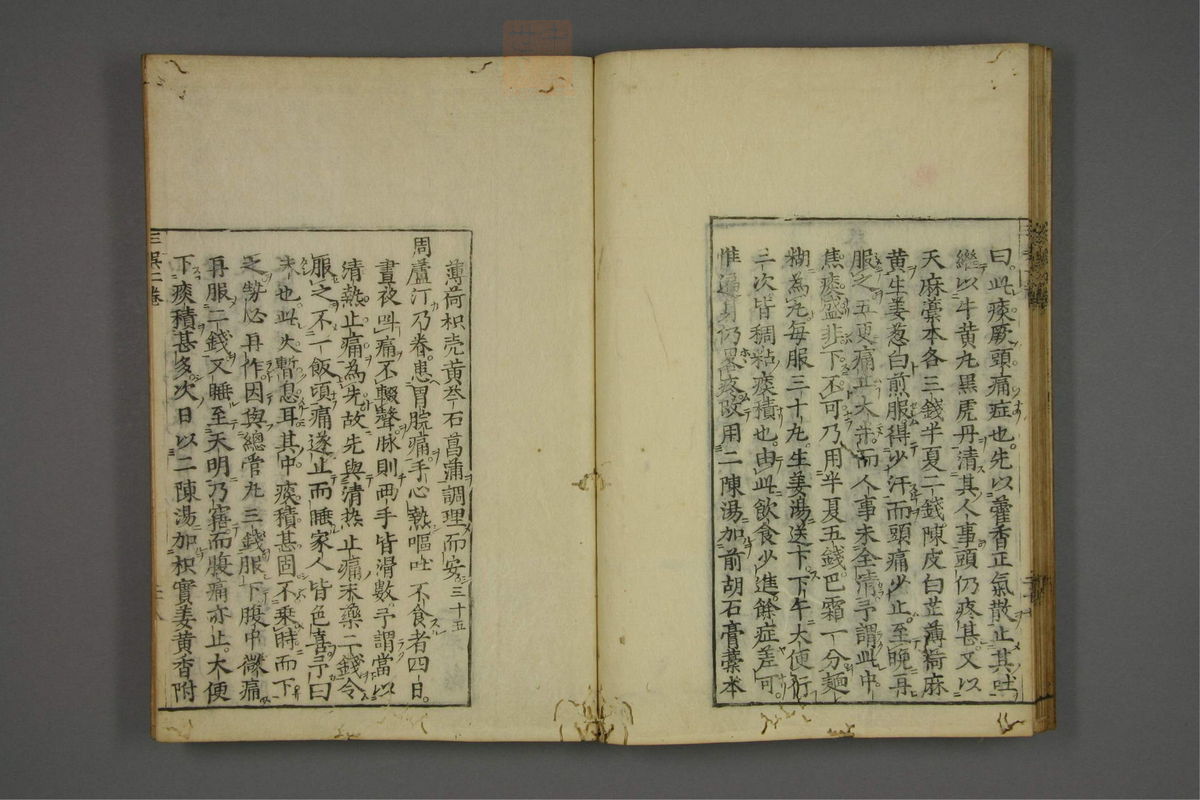 曰此痰厥頭痛症也先以藿香正氣散止其吐
繼以牛黄丸黒虎丹清其人事頭仍疼甚又以
天麻藁本各三錢半夏二錢陳皮白芷薄荷麻
黄生姜葱白煎服得少汗而頭痛少止至晩再
服之五更痛止大半而人事未全清予謂此中
焦痰盛非下不可乃用半夏五錢巴霜一分麺
糊為丸毎服三十丸生姜湯送下下午大便行
三次皆稠粘痰積也由此飲食少進餘症差可
惟遍身仍畧疼改用二陳湯加前胡石膏藁本
薄荷枳壳黄芩石菖蒲調理而安三十五
周蘆汀乃眷患胃脘痛手心熱嘔吐不食者四日
晝夜叫痛不輟聲脉則両手皆滑數予謂當以
清熱止痛為先故先與清热止痛末藥二錢令
服之不一飯頃痛遂止而睡家人皆色喜予曰
未也此火暫息耳其中痰積甚固不乘時而下
之勢必再作因與總管丸三錢服下腹中微痛
再服二錢又睡至天明乃寤而腹痛亦止大便
下痰積甚多次日以二陳湯加枳實姜黄香附
三吳二巻